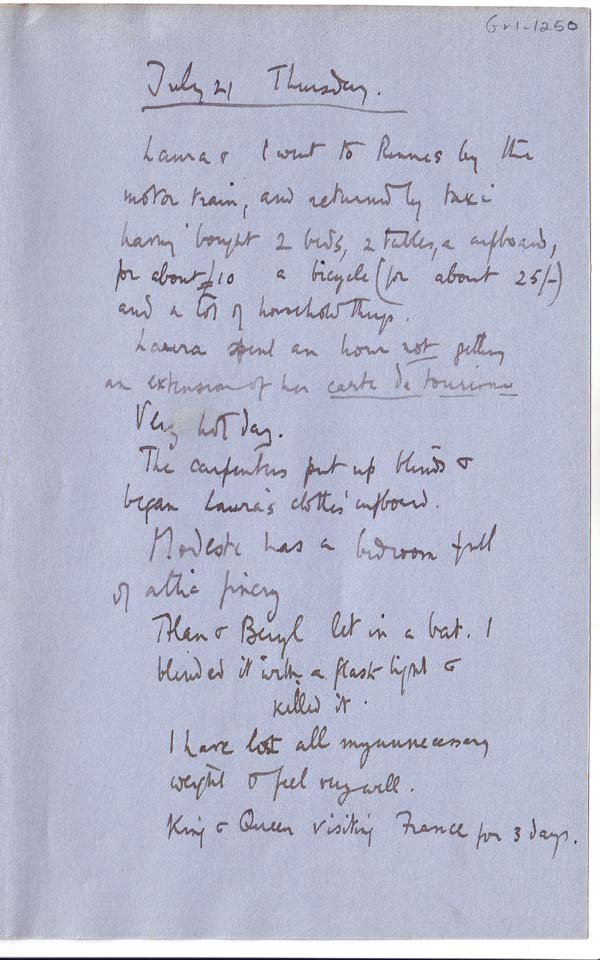 Gr1-1250
July 21 Thursday.
Laura & I went to Rennes by the
motor train, and returned by taxi
having bought 2 beds, 2 tables, a cupboard,
for about £10 a bicycle (for about 25/-)
and a lot of household things.
Laura spent an hour not getting
an extension of her carte de tourisme
Very hot day.
The carpenters put up blinds &
began Laura's clothes cupboard.
Modeste has a bedroom full
of attic finery
Alan & Beryl let in a bat. I
blinded it with a flash light &
killed it.
I have lost all my unnecessary
weight & feel very well.
King & Queen visiting France for 3 days.